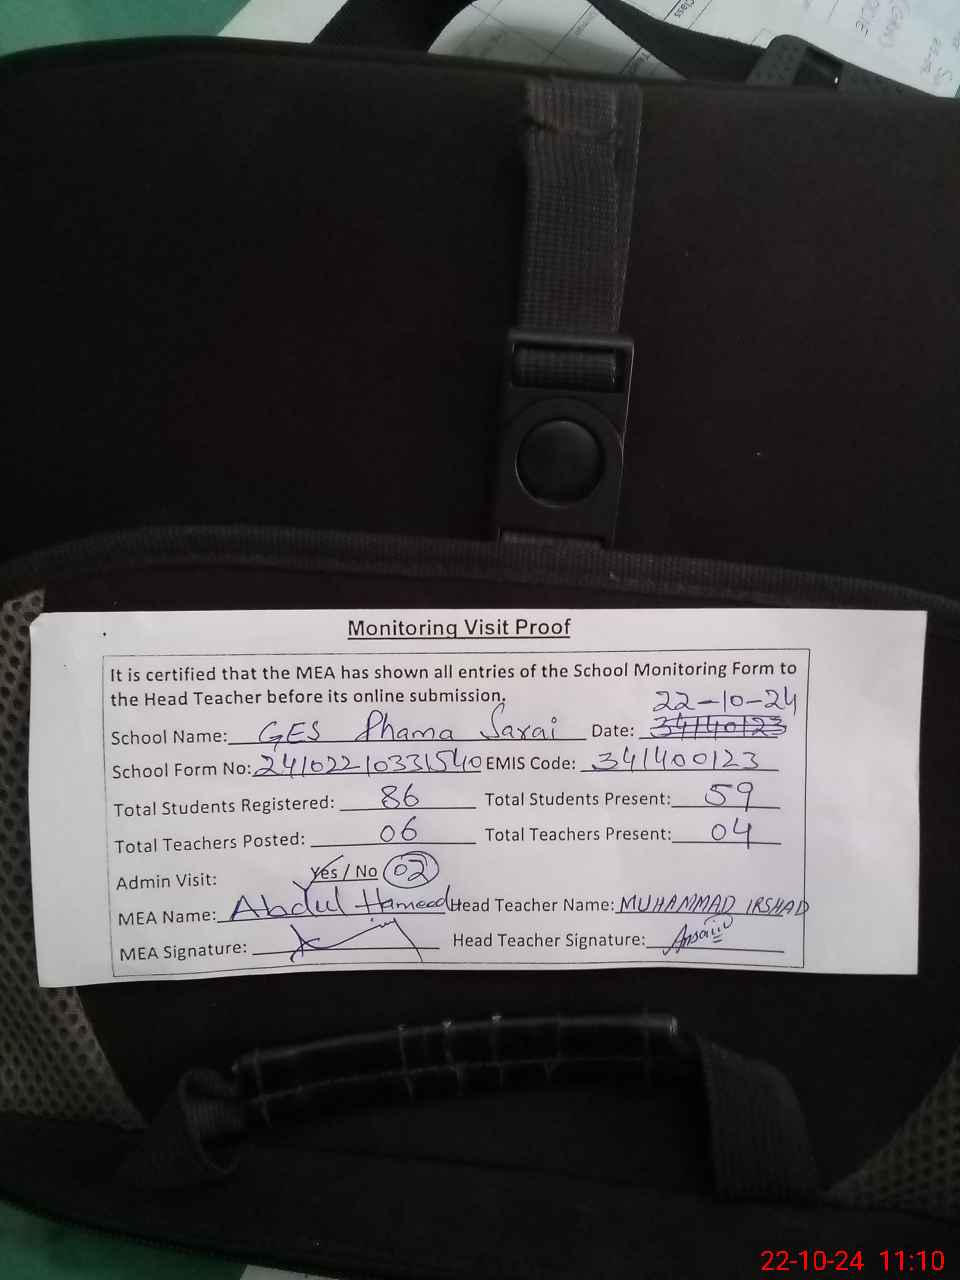 Class
Monitoring Visit Proof
It is certified that the MEA has shown all entries of the School Monitoring Form to
the Head Teacher before its online submission.
22-10-24
School Name: GES Dhama Sarai Date: 34140123
School Form No: 24102210331540 EMIS Code: 341400123
Total Students Registered: 86 Total Students Present: 59
Total Teachers Posted: 06 Total Teachers Present: 04
Admin Visit: Yes / No 02
MEA Name: Abdul Hameed Head Teacher Name: MUHAMMAD IRSHAD
MEA Signature: Head Teacher Signature: Ansari
22-10-24 11:10